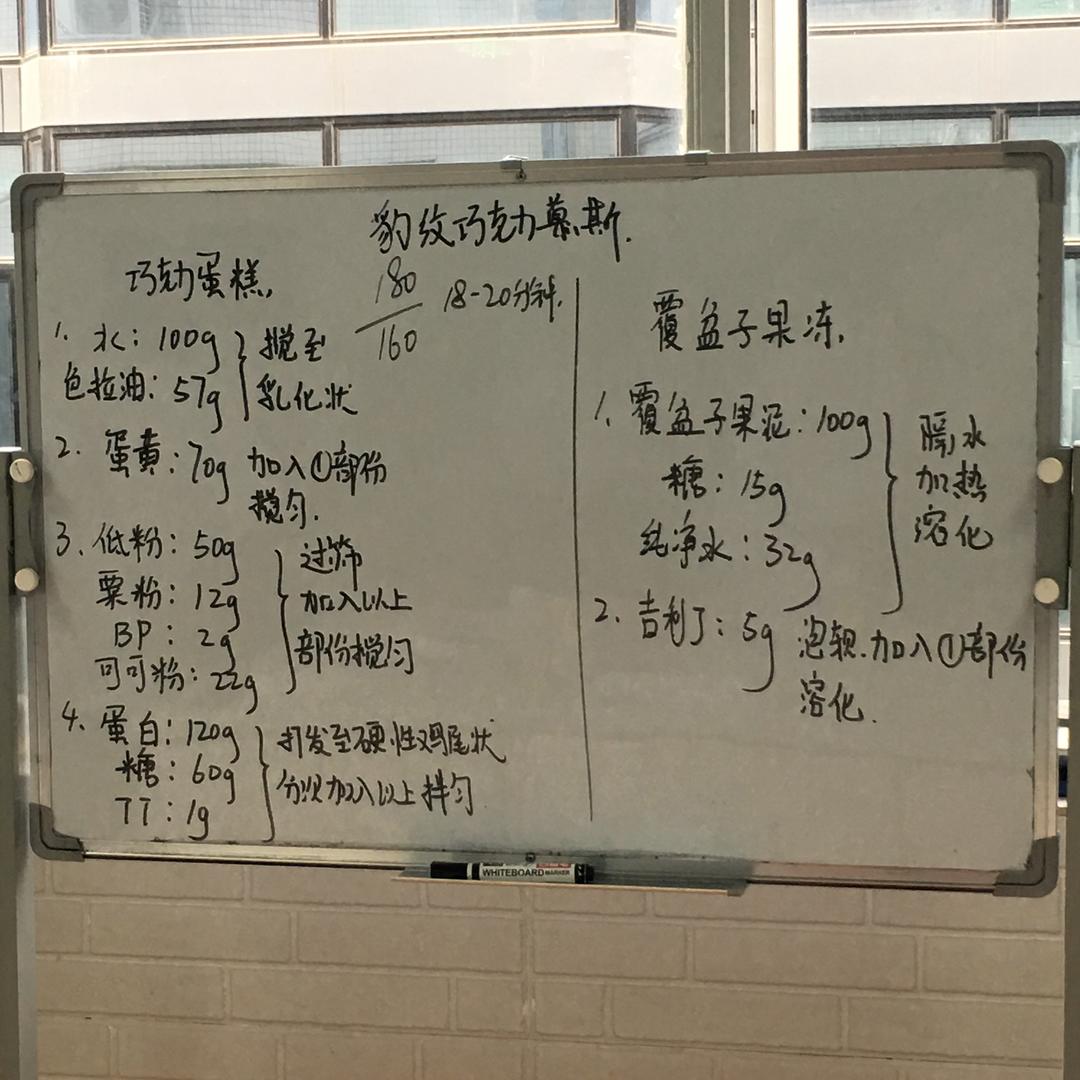 豹纹巧克力慕斯.
巧克力蛋糕,
180
160
18-20分钟.
1. 水: 100g
色拉油: 57g
搅至
乳化状
2. 蛋黄: 70g 加入①部份
搅匀.
3、低粉: 50g
粟粉: 12g
BP: 2g
可可粉: 22g
过筛
加入以上
部份搅匀
4、蛋白: 120g
糖: 60g
TT: 1g
打发至硬性鸡尾状
分次加入以上拌匀
覆盆子果冻,
1、覆盆子果泥: 100g
糖: 15g
纯净水: 32g
隔水
加热
溶化
2、吉利丁: 5g 泡软.加入①部份
溶化.
WHITEBOARD MARKER